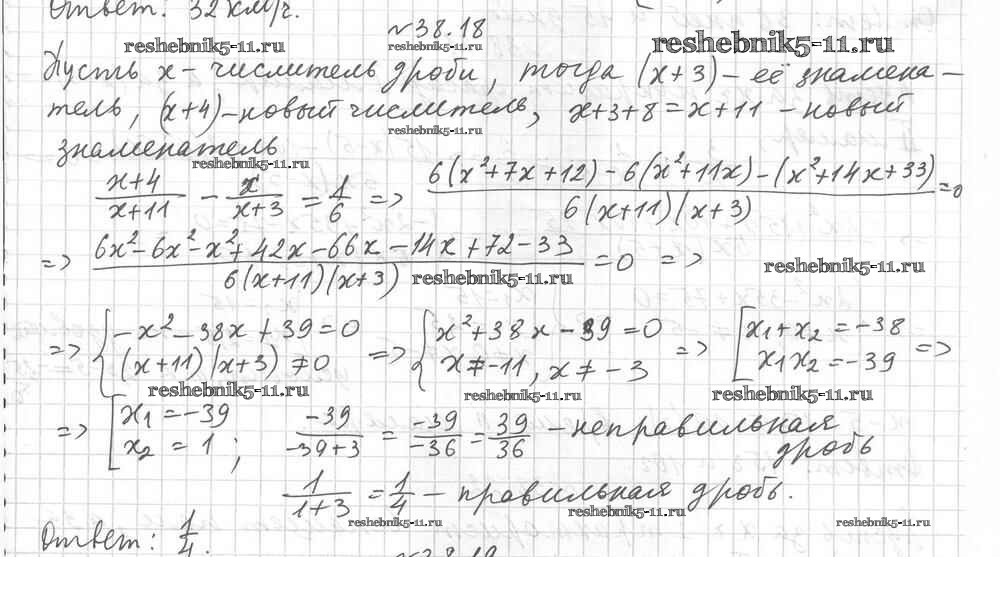 Ответ: 32 км/ч.
№38.18
reshebnik5-11.ru reshebnik5-11.ru reshebnik5-11.ru
Пусть x – числитель дроби, тогда (x+3) – её знамена-
тель, (x+4) – новый числитель, x+3+8=x+11 – новый
reshebnik5-11.ru
знаменатель
reshebnik5-11.ru
(x+4)/(x+11) - x/(x+3) = 1/6 => (6(x²+7x+12) - 6(x²+11x) - (x²+14x+33))/(6(x+11)(x+3)) = 0
=> (6x²-6x²-x²+42x-66x-14x+72-33)/(6(x+11)(x+3)) = 0 =>
reshebnik5-11.ru reshebnik5-11.ru
=> { -x²-38x+39=0 => { x²+38x-39=0 => [ x₁+x₂=-38
(x+11)(x+3)≠0 x≠-11, x≠-3 x₁x₂=-39 =>
reshebnik5-11.ru reshebnik5-11.ru reshebnik5-11.ru
=> [ x₁=-39 -39/(-39+3) = -39/-36 = 39/36 – неправильная
x₂=1; дробь
1/(1+3) = 1/4 – правильная дробь.
reshebnik5-11.ru reshebnik5-11.ru reshebnik5-11.ru
Ответ: 1/4.
№38.19